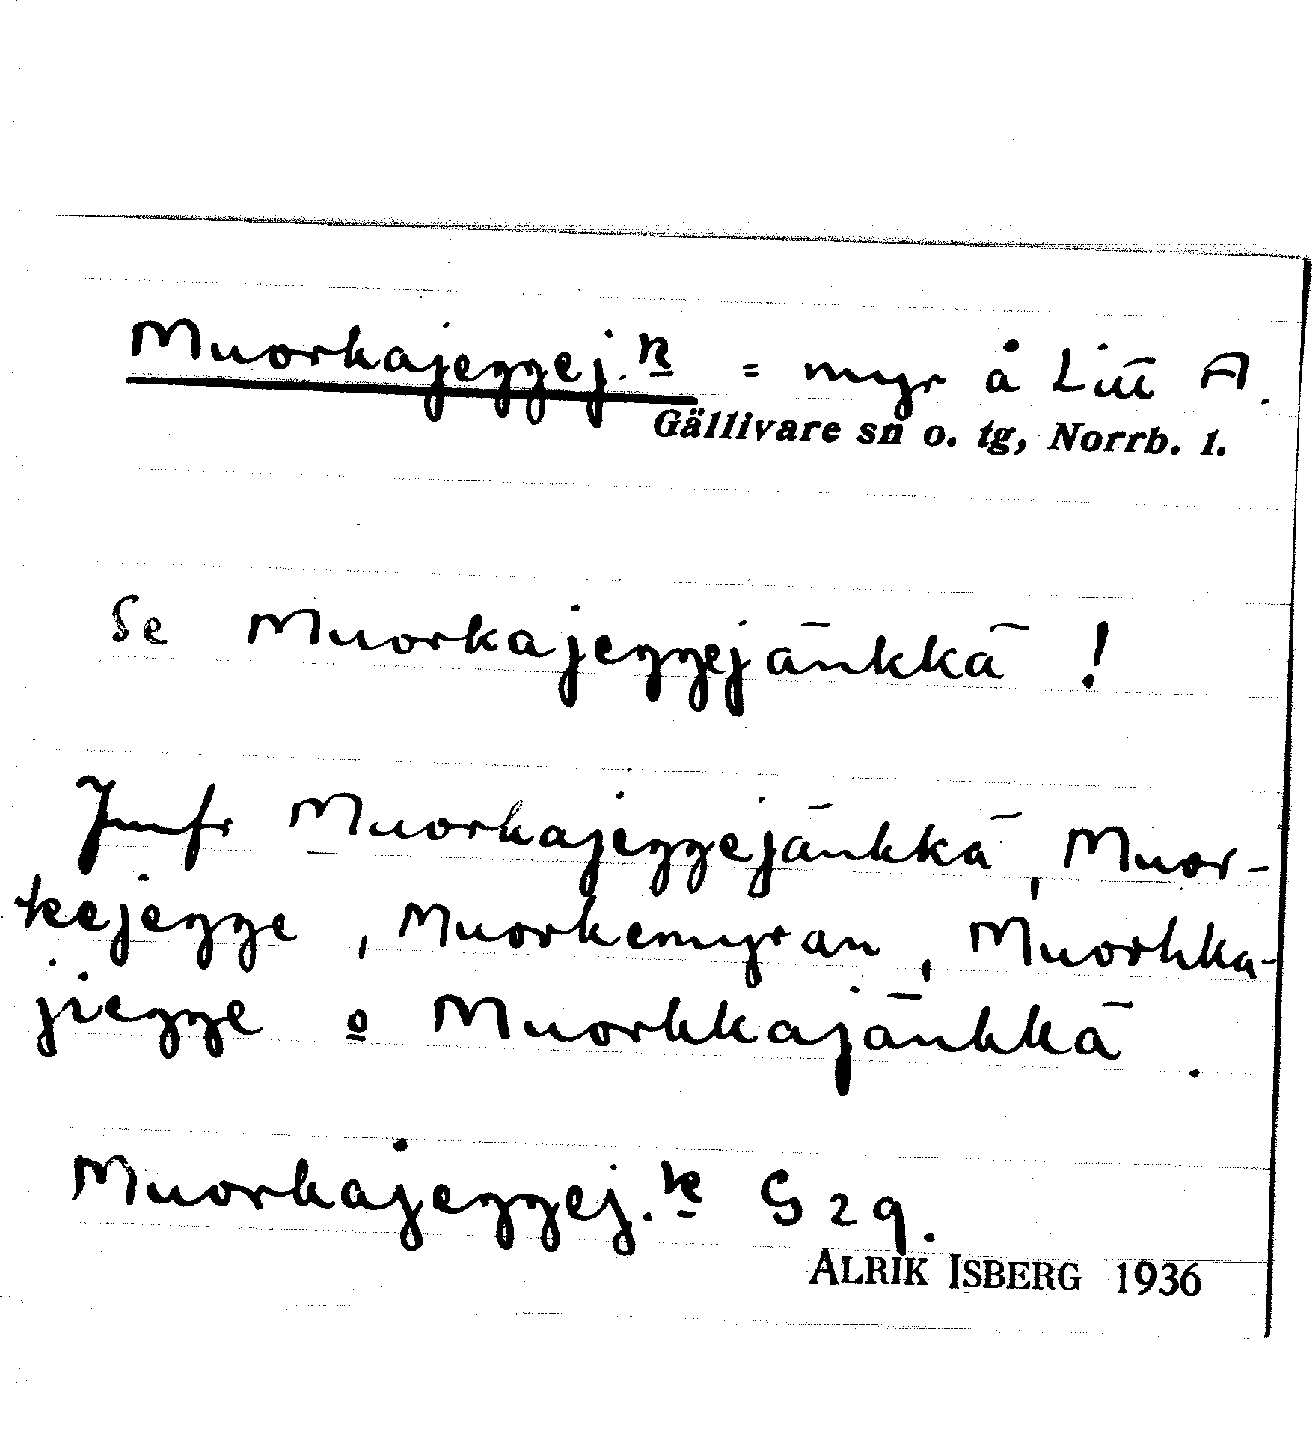 Muorkajeggej.k = myr å Litt A.
Gällivare sn o. tg, Norrb. l.
Se Muorkajeggejänkkä !
Jmfr Muorkajeggejänkkä, Muor-
kejegge, Muorkemyran, Muorkka-
jiegge o Muorkkajänkkä.
Muorkajeggej.k G 29.
ALRIK ISBERG 1936